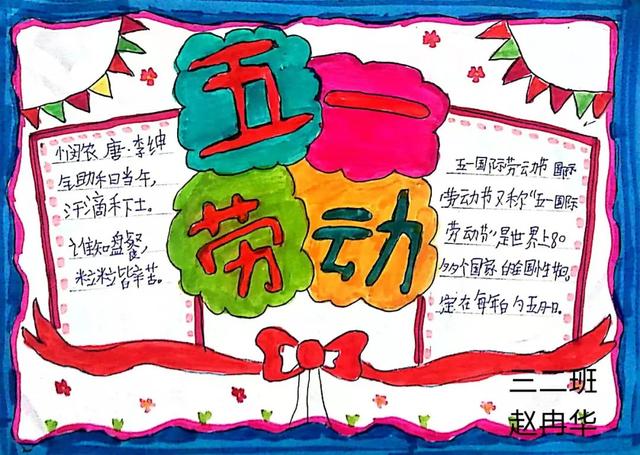 五一
劳动
悯农 唐·李绅
锄禾日当午，
汗滴禾下土。
谁知盘餐，
粒粒皆辛苦。
五一国际劳动节 国际
劳动节又称"五一国际
劳动节"是世界上80
多个国家的全国性节日。
定在每年的五月一日。
三二班
赵冉华